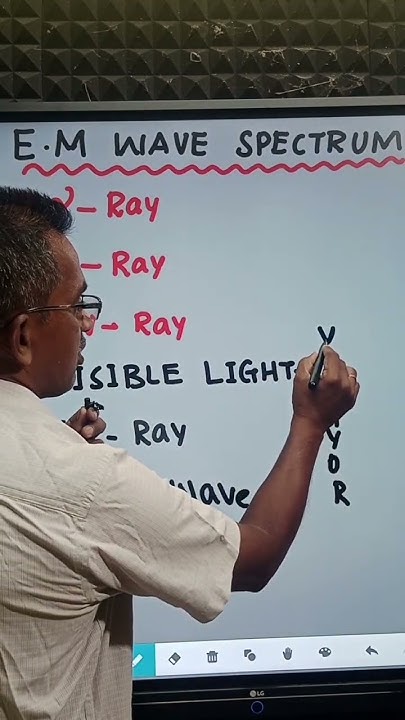 E.M WAVE SPECTRUM
γ - Ray
- Ray
- Ray
V
ISIBLE LIGHT
- Ray
Y
O
Wave
R
LG